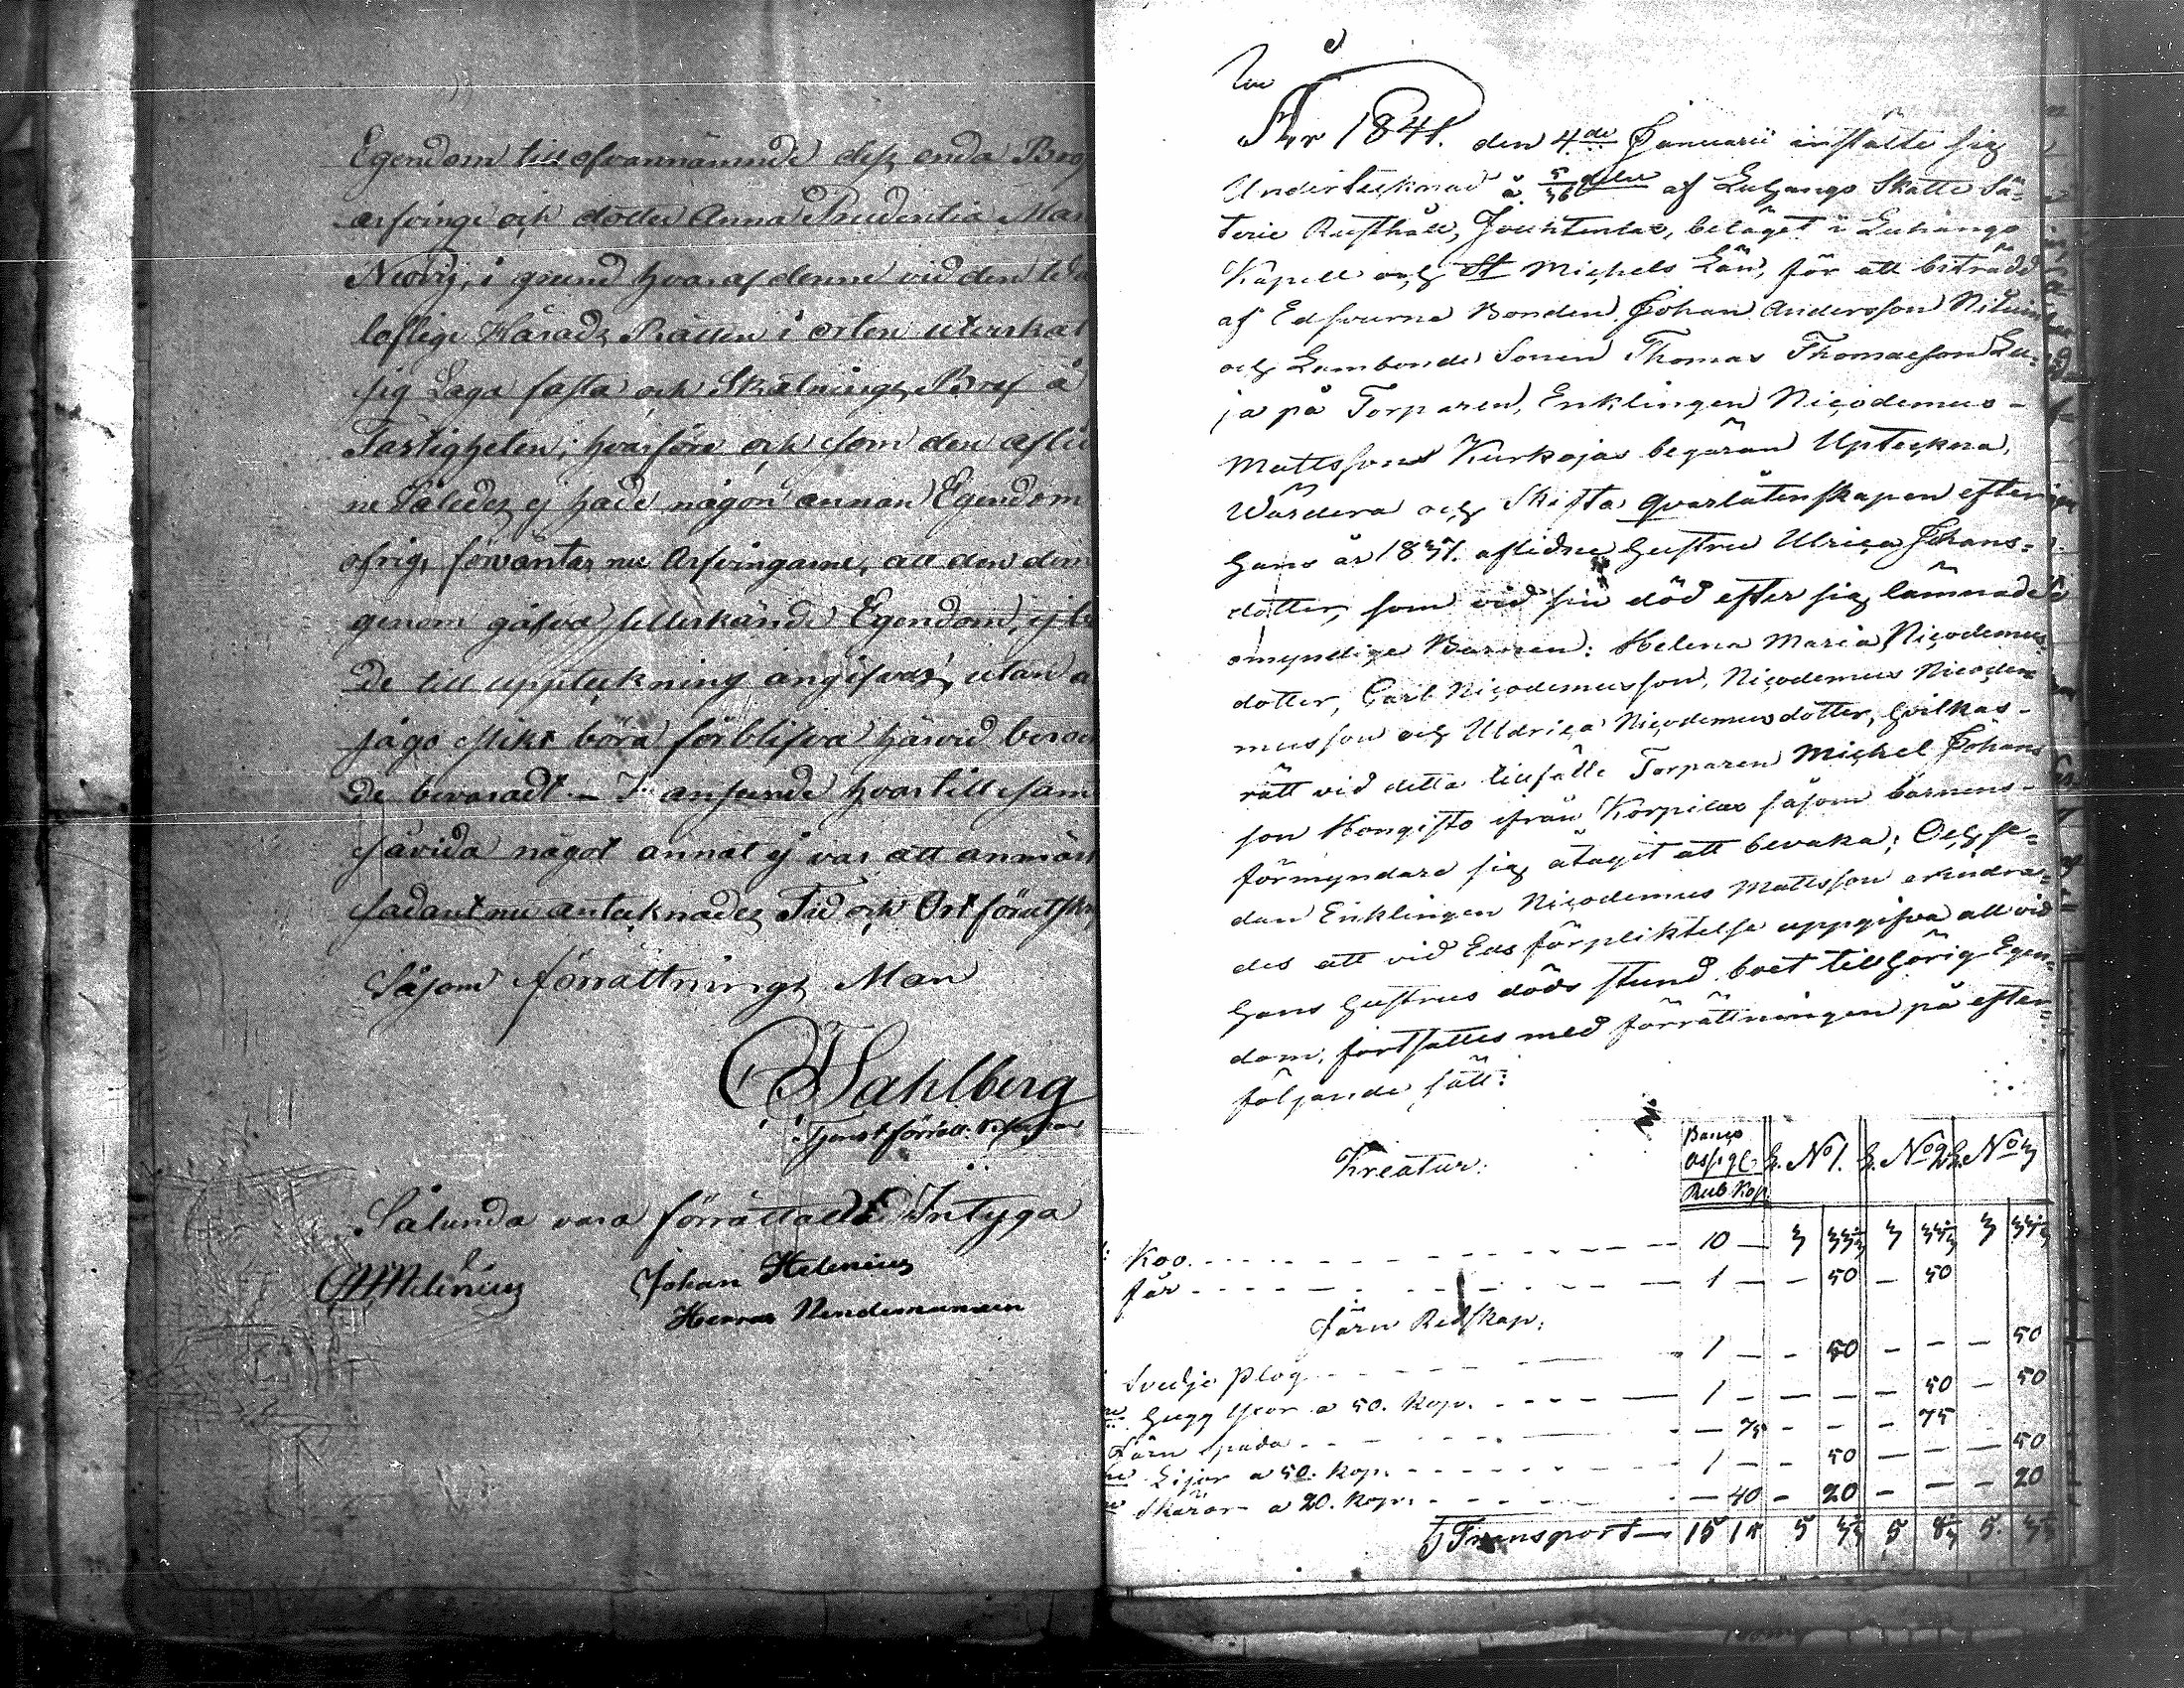 Egendom till ofvannämnde dess enda Bröst
arfvinge och dotter Anna Prudentia Mar
i grund hvaraf denne vid den
loflige Härads Rätten i orten utverkat
sig Laga fasta och Skötnings Bref å
Fastigheten; hvarföre och som den aflid
ne Således ej hade någon annan Egendom
öfrig, förväntar nu Arfvingarne, att den dem
genom gåfva tillerkände Egendom, ej
de till uppteckning angifvas, utan
jägo böra förblifva härvid
de bevaradt. — I anseende hvartill sam
såvida något annat ej var att anmärk
sådant nu antecknades Tid och Ort förutskr
Såsom förrättnings Man
Sahlberg
Tjenstförrätt.
Sålunda vara förrättadt Intyga
Helenius Johan Helenius
Herman
År 1841. den 4de Januarii instälte sig
Undertecknad å 5/36 delar af Luhango Skatte Sä=
terie Rusthåll, Jouhtenlax, beläget i Luhango
Kapell och St Michels Län, för att biträdd
af Edsvurna Bonden Johan Andersson
och Lumbonde Sonen Thomas Thomasson Lu=
ja på Torparen, Enklingen Nicodemus
Mattssons Kurkajas begäran Upteckna,
Wärdera och Skifta qvarlåtenskapen efter
Hans år 1837. aflidne Hustru Ulrica Johans=
dotter, som vid sin död efter sig lämnade
omyndige Barnen: Helena Maria Nicodemus
dotter, Carl Nicodemusson, Nicodemus Nicode=
musson och Uldrica Nicodemusdotter, hvilkas
rätt vid detta tillfälle Torparen Michel Johans
son Hongisto ifrån Korpilax såsom barnens
förmyndare sig åtagit att bevaka; Och se=
dan Enklingen Nicodemus Mattsson erindra=
des att vid Eds förpliktelse uppgifva all vid
Hans Hustrus döds stund boet tillhörig Egen=
dom, fortsattes med förrättningen på efter
följande sätt:
Kreatur.
Banco Assign
Rub Kop
L. No 1. L. No 2. L. No 3
Koo. 10 — 3 33 1/3 3 33 1/3 3 33 1/3
får 1 — — 50 — 50
Järn Redskap:
Svedje Plog 1 — — 50 — — — 50
Hugg Yxor a 50. Kop. 1 — — — — 50 — 50
Järn Spada — 75 — — — 75
Lijor a 50. Kop. 1 — — 50 — — — 50
Skäror a 20. Kop. — 40 — 20 — — — 20
Transport 15 15 5 3 1/3 5 8 1/3 5